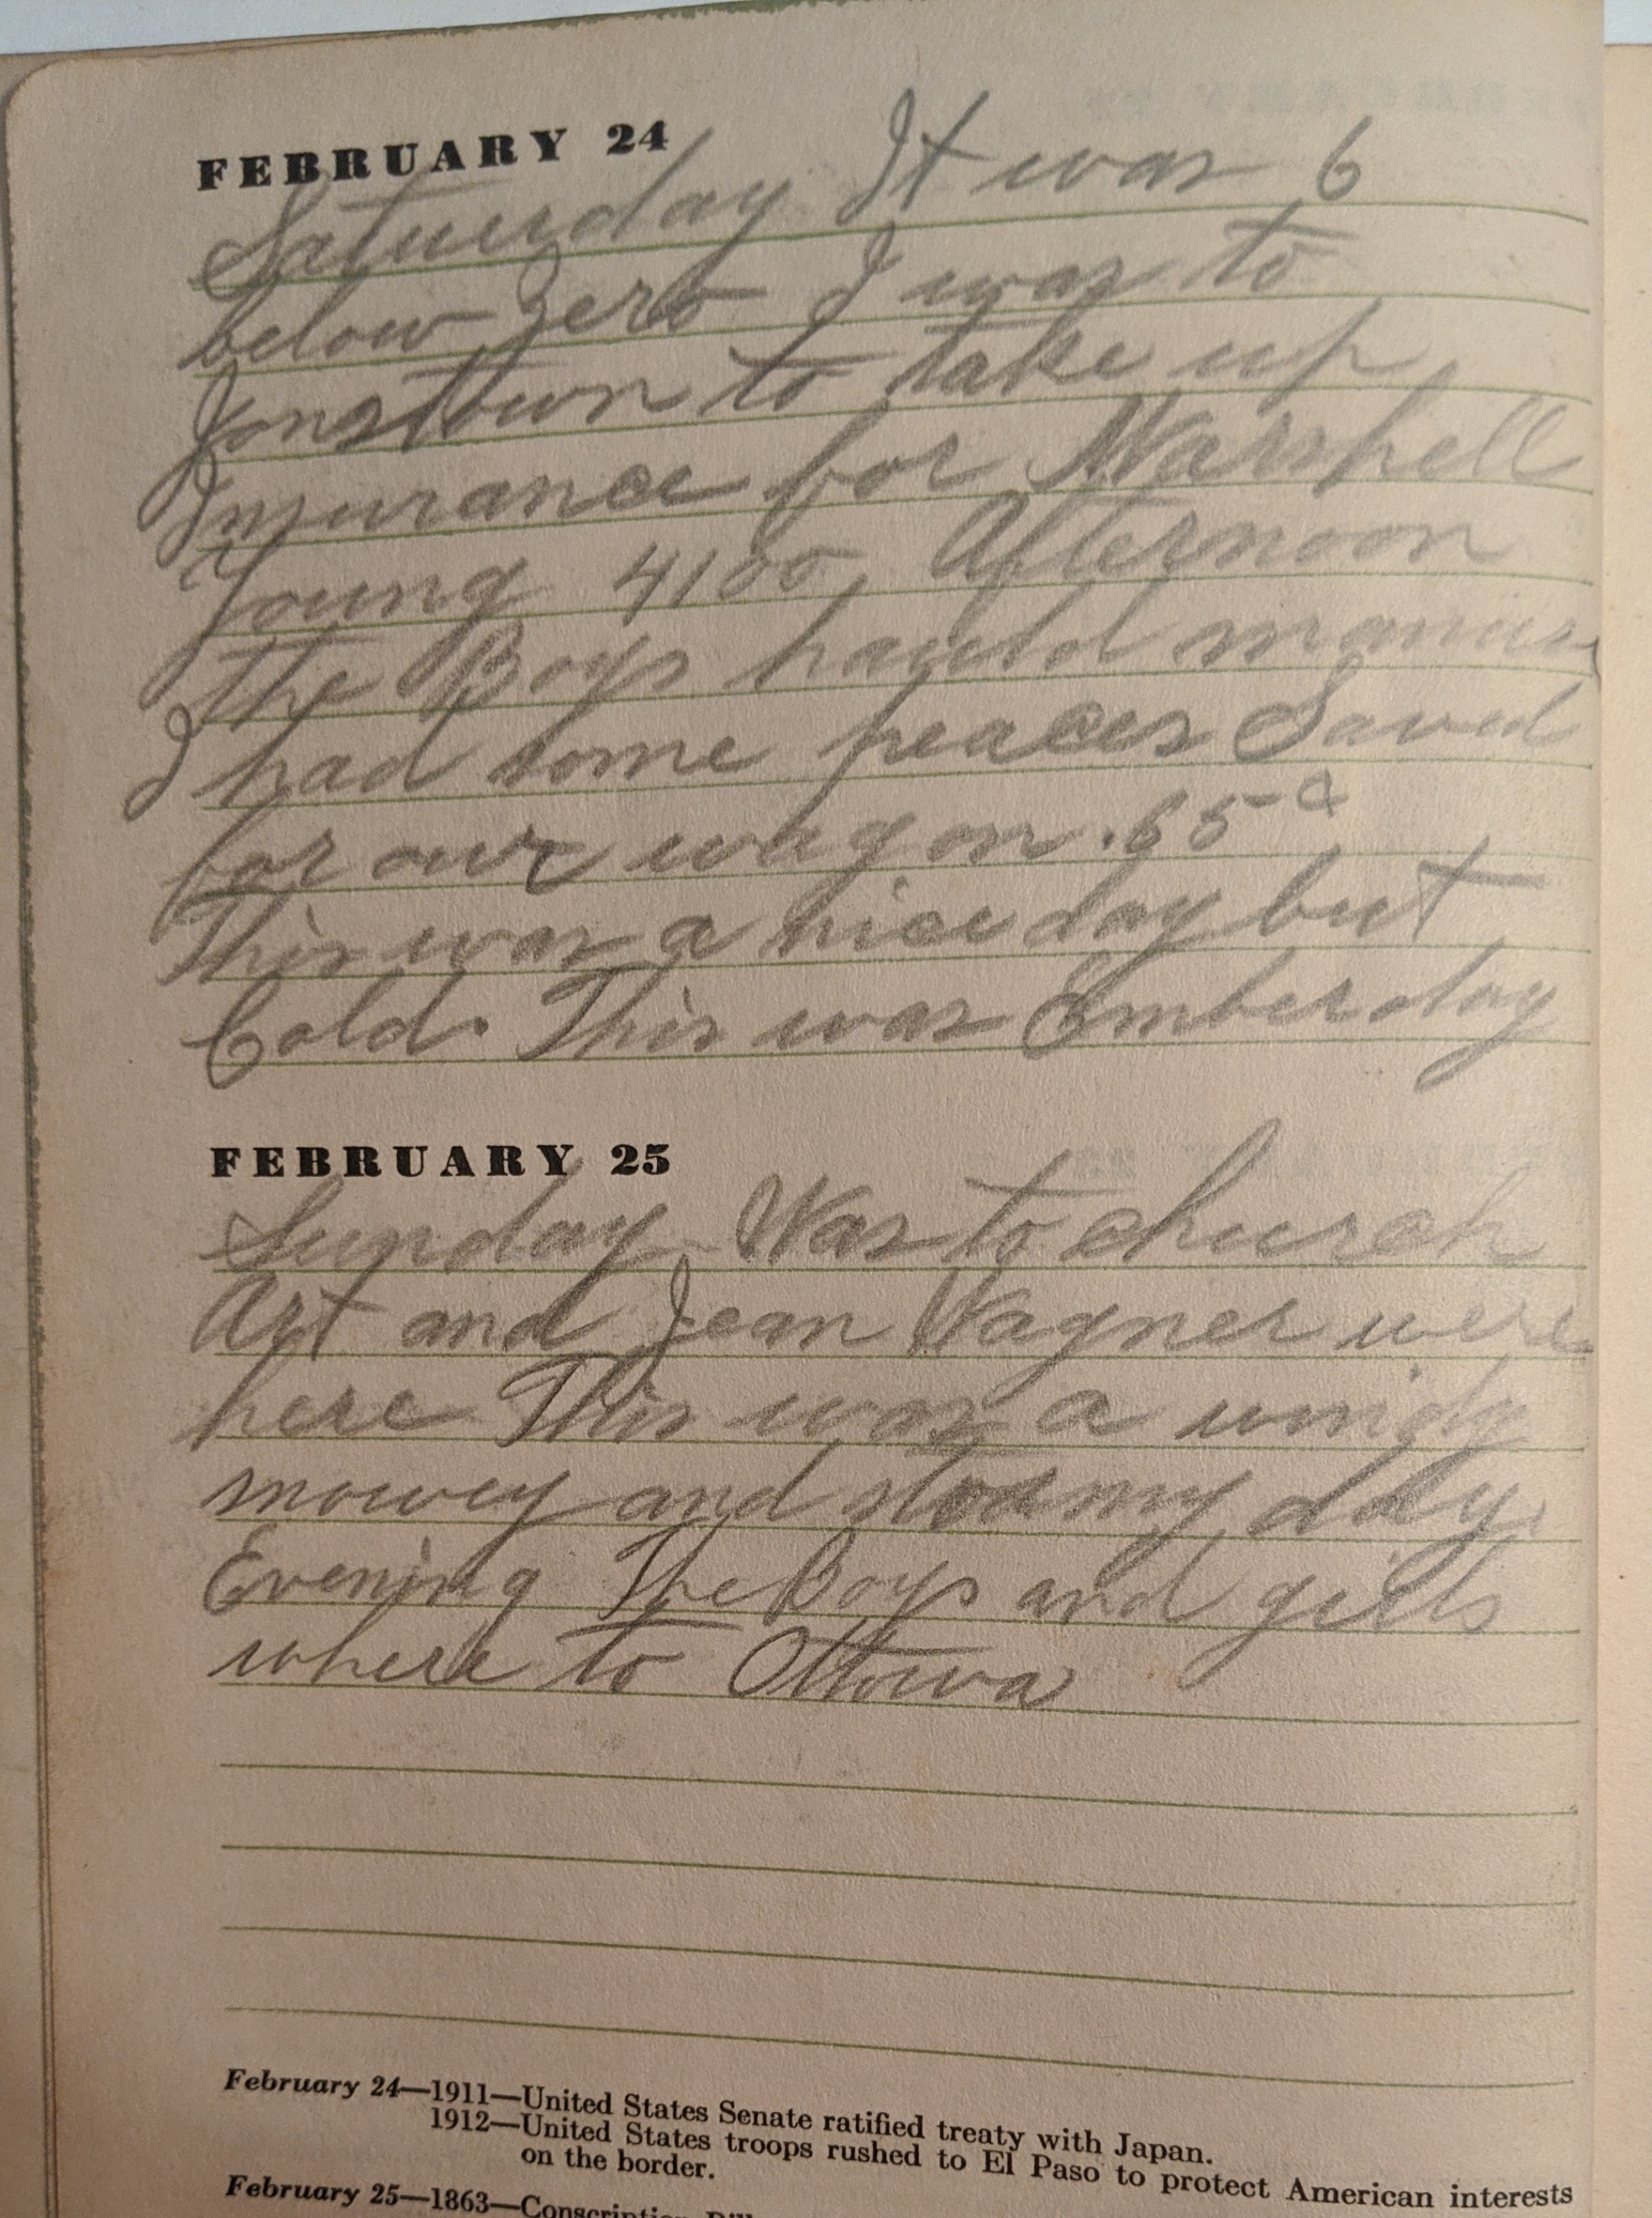 FEBRUARY 24
Saturday It was 6
below zero I was to
Jonstown to take up
Insurance for Marshell
Young 4100. Afternoon
the Boys hauld manure
I had some peaces Saved
for our wagon .65 ¢
This was a nice day but
Cold. This was Emberday
FEBRUARY 25
Sunday Was to church
Art and Jean Wagner were
here This was a windy
snowey and stormy day.
Evening The Boys and girls
where to Ottowa
February 24—1911—United States Senate ratified treaty with Japan.
1912—United States troops rushed to El Paso to protect American interests
on the border.
February 25—1863—Conscription